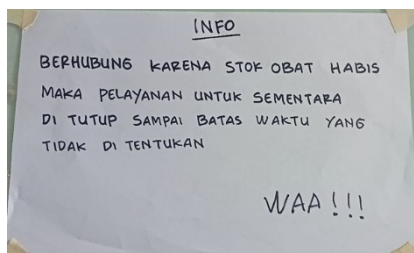 INFO
BERHUBUNG KARENA STOK OBAT HABIS
MAKA PELAYANAN UNTUK SEMENTARA
DI TUTUP SAMPAI BATAS WAKTU YANG
TIDAK DI TENTUKAN
WAA!!!